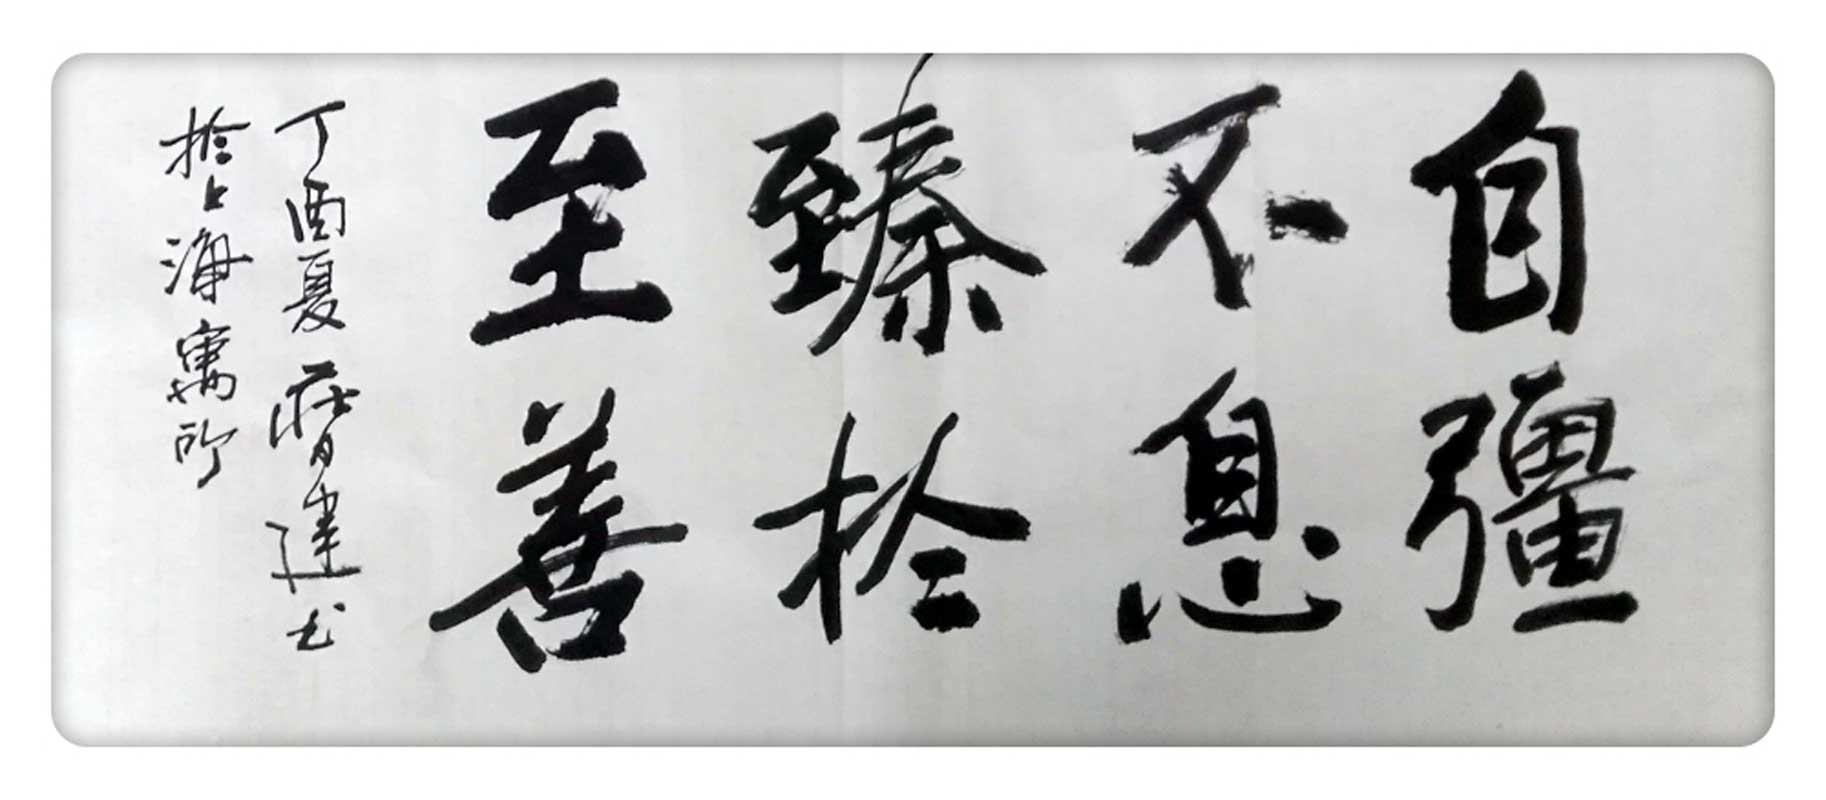 自彊
不息
臻於
至善
丁酉夏 建书
於上海寓所